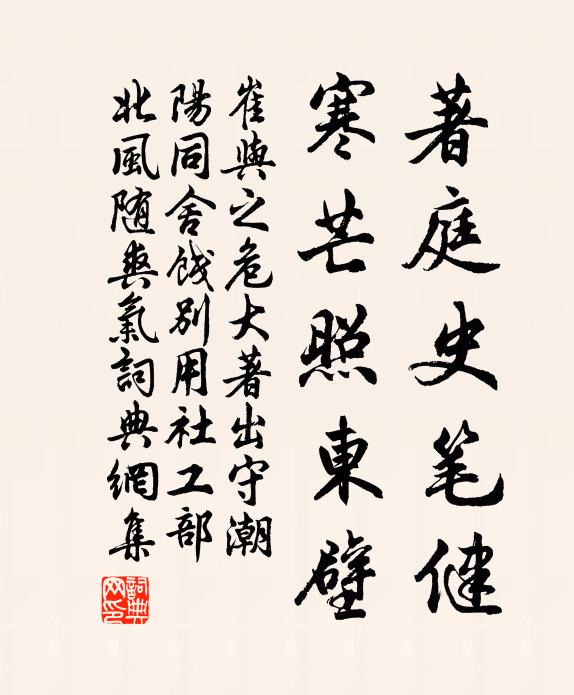 著庭史笔健
寒芒照東壁
崔與之危大著出守潮
陽同舍餞别用社工部
北風随爽氣詞典網集
詞典
网印